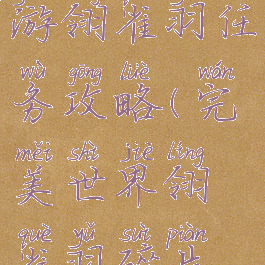 游翎雀羽任
wù gōng lüè wán
务攻略(完
měi shì jiè líng
美世界翎
què yǔ suì piàn
雀羽碎片